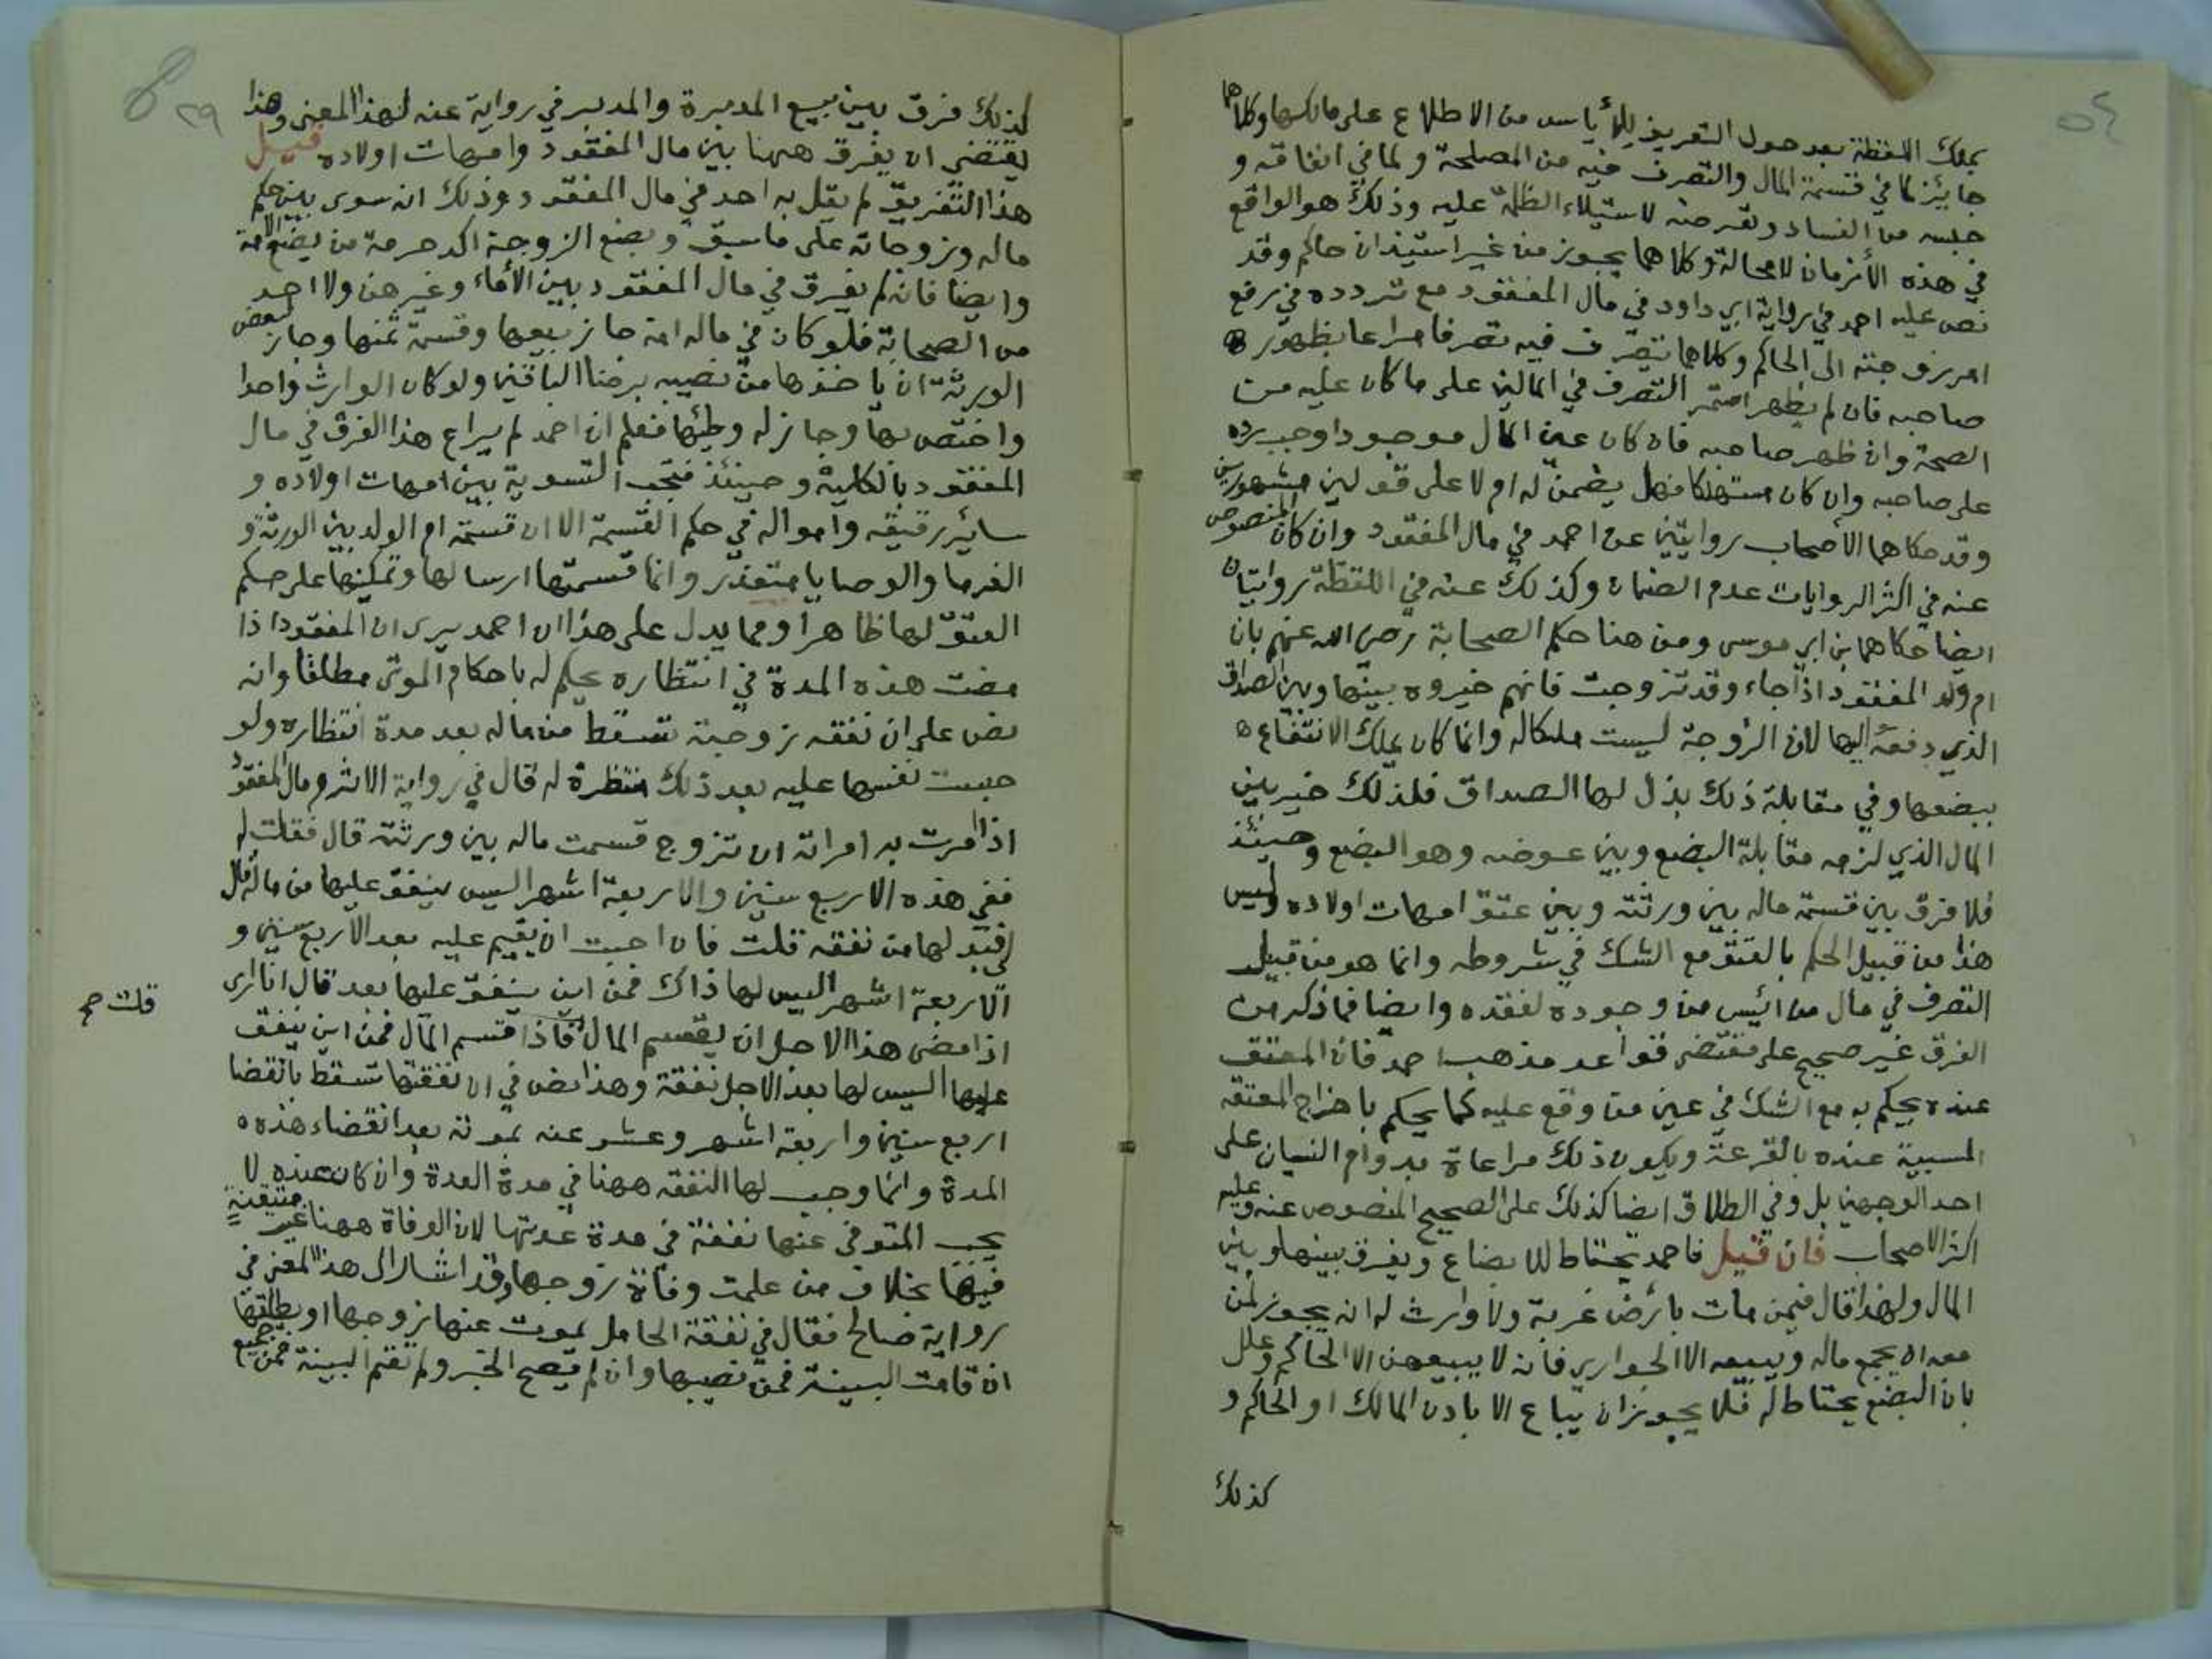 ٥٤
يملك اللقطة بعد حول التعريف للأياس من الاطلاع على مالكها وكلاهما
جائز لما في قسمة المال والتصرف فيه من المصلحة ولما في ابقائه و
حبسه من الفساد وتعرضه لاستيلاء الظلمة عليه وذلك هو الواقع
في هذه الأزمان لا محالة وكلاهما يجوز من غير استيذان حاكم وقد
نص عليه احمد في رواية ابي داود في مال المفقود مع تردده في رفع
امر زوجته الى الحاكم وكلاهما يتصرف فيه تصرفا مراعا بظهور
صاحبه فان لم يظهر استمر التصرف في المالين على ما كان عليه من
الصحة وان ظهر صاحبه فان كان عين المال موجودا وجب رده
على صاحبه وان كان مستهلكا فهل يضمن له ام لا على قولين مشهورين
وقد حكاهما الأصحاب روايتين عن احمد في مال المفقود وان كان المنصوص
عنه في اكثر الروايات عدم الضمان وكذلك عنه في اللقطة روايتان
ايضا حكاهما بن ابي موسى ومن هنا حكم الصحابة رضي الله عنهم بان
ام ولد المفقود اذا جاء وقد تزوجت فانهم خيروه بينها وبين الصداق
الذي دفعه اليها لان الزوجة ليست ملكا له وانما كان يملك الانتفاع
ببضعها وفي مقابلة ذلك بذل لها الصداق فلذلك خير بين
المال الذي لزمه مقابلة البضع وبين عوضه وهو البضع وحينئذ
فلا فرق بين قسمة ماله بين ورثته وبين عتق امهات اولاده وليس
هذا من قبيل الحكم بالعتق مع الشك في شروطه وانما هو من قبيل
التصرف في مال من ائيس من وجوده لفقده وايضا فما ذكر من
الفرق غير صحيح على مقتضى قواعد مذهب احمد فان المعتق
عنده يحكم به مع الشك في عين من وقع عليه كما يحكم باخراج المعتقه
المسبية عنده بالقرعة ويكون ذلك مراعاة بدوام النسيان على
احد الوجهين بل وفي الطلاق ايضا كذلك على الصحيح المنصوص عنه وعليه
اكثر الاصحاب فان قيل فاحمد يحتاط للابضاع ويفرق بينها وبين
المال ولهذا قال فيمن مات بأرض غربة ولا وارث له انه يجوز لمن
معه ان يجمع ماله ويبيعه الا الجواري فانه لا يبيعهن الا الحاكم وعلل
بان البضع يحتاط له فلا يجوز ان يباع الا باذن المالك او الحاكم و
كذلك
٢٩
كذلك فرق بين بيع المدبرة والمدبر في رواية عنه لهذا المعنى وهذا
يقتضي ان يفرق ههنا بين مال المفقود وامهات اولاده قيل
هذا التفريق لم يقل به احد في مال المفقود وذلك انه سوى بين حكم
ماله وزوجاته على ما سبق وبضع الزوجة اكد حرمة من بضع الامة
وايضا فانه لم يفرق في مال المفقود بين الأماء وغيرهن ولا احد
من الصحابة فلو كان في ماله امة جاز بيعها وقسمة ثمنها وجاز لبعض
الورثة ان ياخذها من نصيبه برضا الباقين ولو كان الوارث واحدا
واختص بها وجاز له وطئها فعلم ان احمد لم يراع هذا الفرق في مال
المفقود بالكلية وحينئذ فتجب التسوية بين امهات اولاده و
سائر رقيقه وامواله في حكم القسمة الا ان قسمة ام الولد بين الورثة و
الغرما والوصايا متعذر وانما قسمتها ارسالها وتمكينها على حكم
العتق لها ظاهرا ومما يدل على هذا ان احمد يرى ان المفقود اذا
مضت هذه المدة في انتظاره يحكم له باحكام الموتى مطلقا وانه
نص على ان نفقه زوجته تسقط من ماله بعد مدة انتظاره ولو
حبست نفسها عليه بعد ذلك منتظرة له قال في رواية الاثرم ومال المفقود
اذا امرت به امراته ان تتزوج قسمت ماله بين ورثته قال فقلت له
ففي هذه الاربع سنين والاربعة اشهر اليس ينفق عليها من ماله قال
لابد لها من نفقه قلت فان احبت ان يقيم عليه بعد الاربع سنين و
الاربعة اشهر اليس لها ذاك فمن اين ينفق عليها بعد قال انا ارى
اذا مضى هذا الاجل ان يقسم المال فاذا قسم المال فمن اين ينفق
قلت صح
عليها اليس لها بعد الاجل نفقة وهذا نص في ان نفقتها تسقط بانقضا
اربع سنين واربعة اشهر وعشر عنه بموته بعد انقضاء هذه
المدة وانما وجب لها النفقه ههنا في مدة العدة وان كان عنده لا
يجب المتوفى عنها نفقة في مدة عدتها لان الوفاة ههنا غير متيقنة
فيها بخلاف من علمت وفاة زوجها وقد اشار الى هذا المعنى في
رواية صالح فقال في نفقة الحامل يموت عنها زوجها او يطلقها
ان قامت البينة فمن نصيبها وان لم يصح الخبر ولم تقم البينة فمن جميع